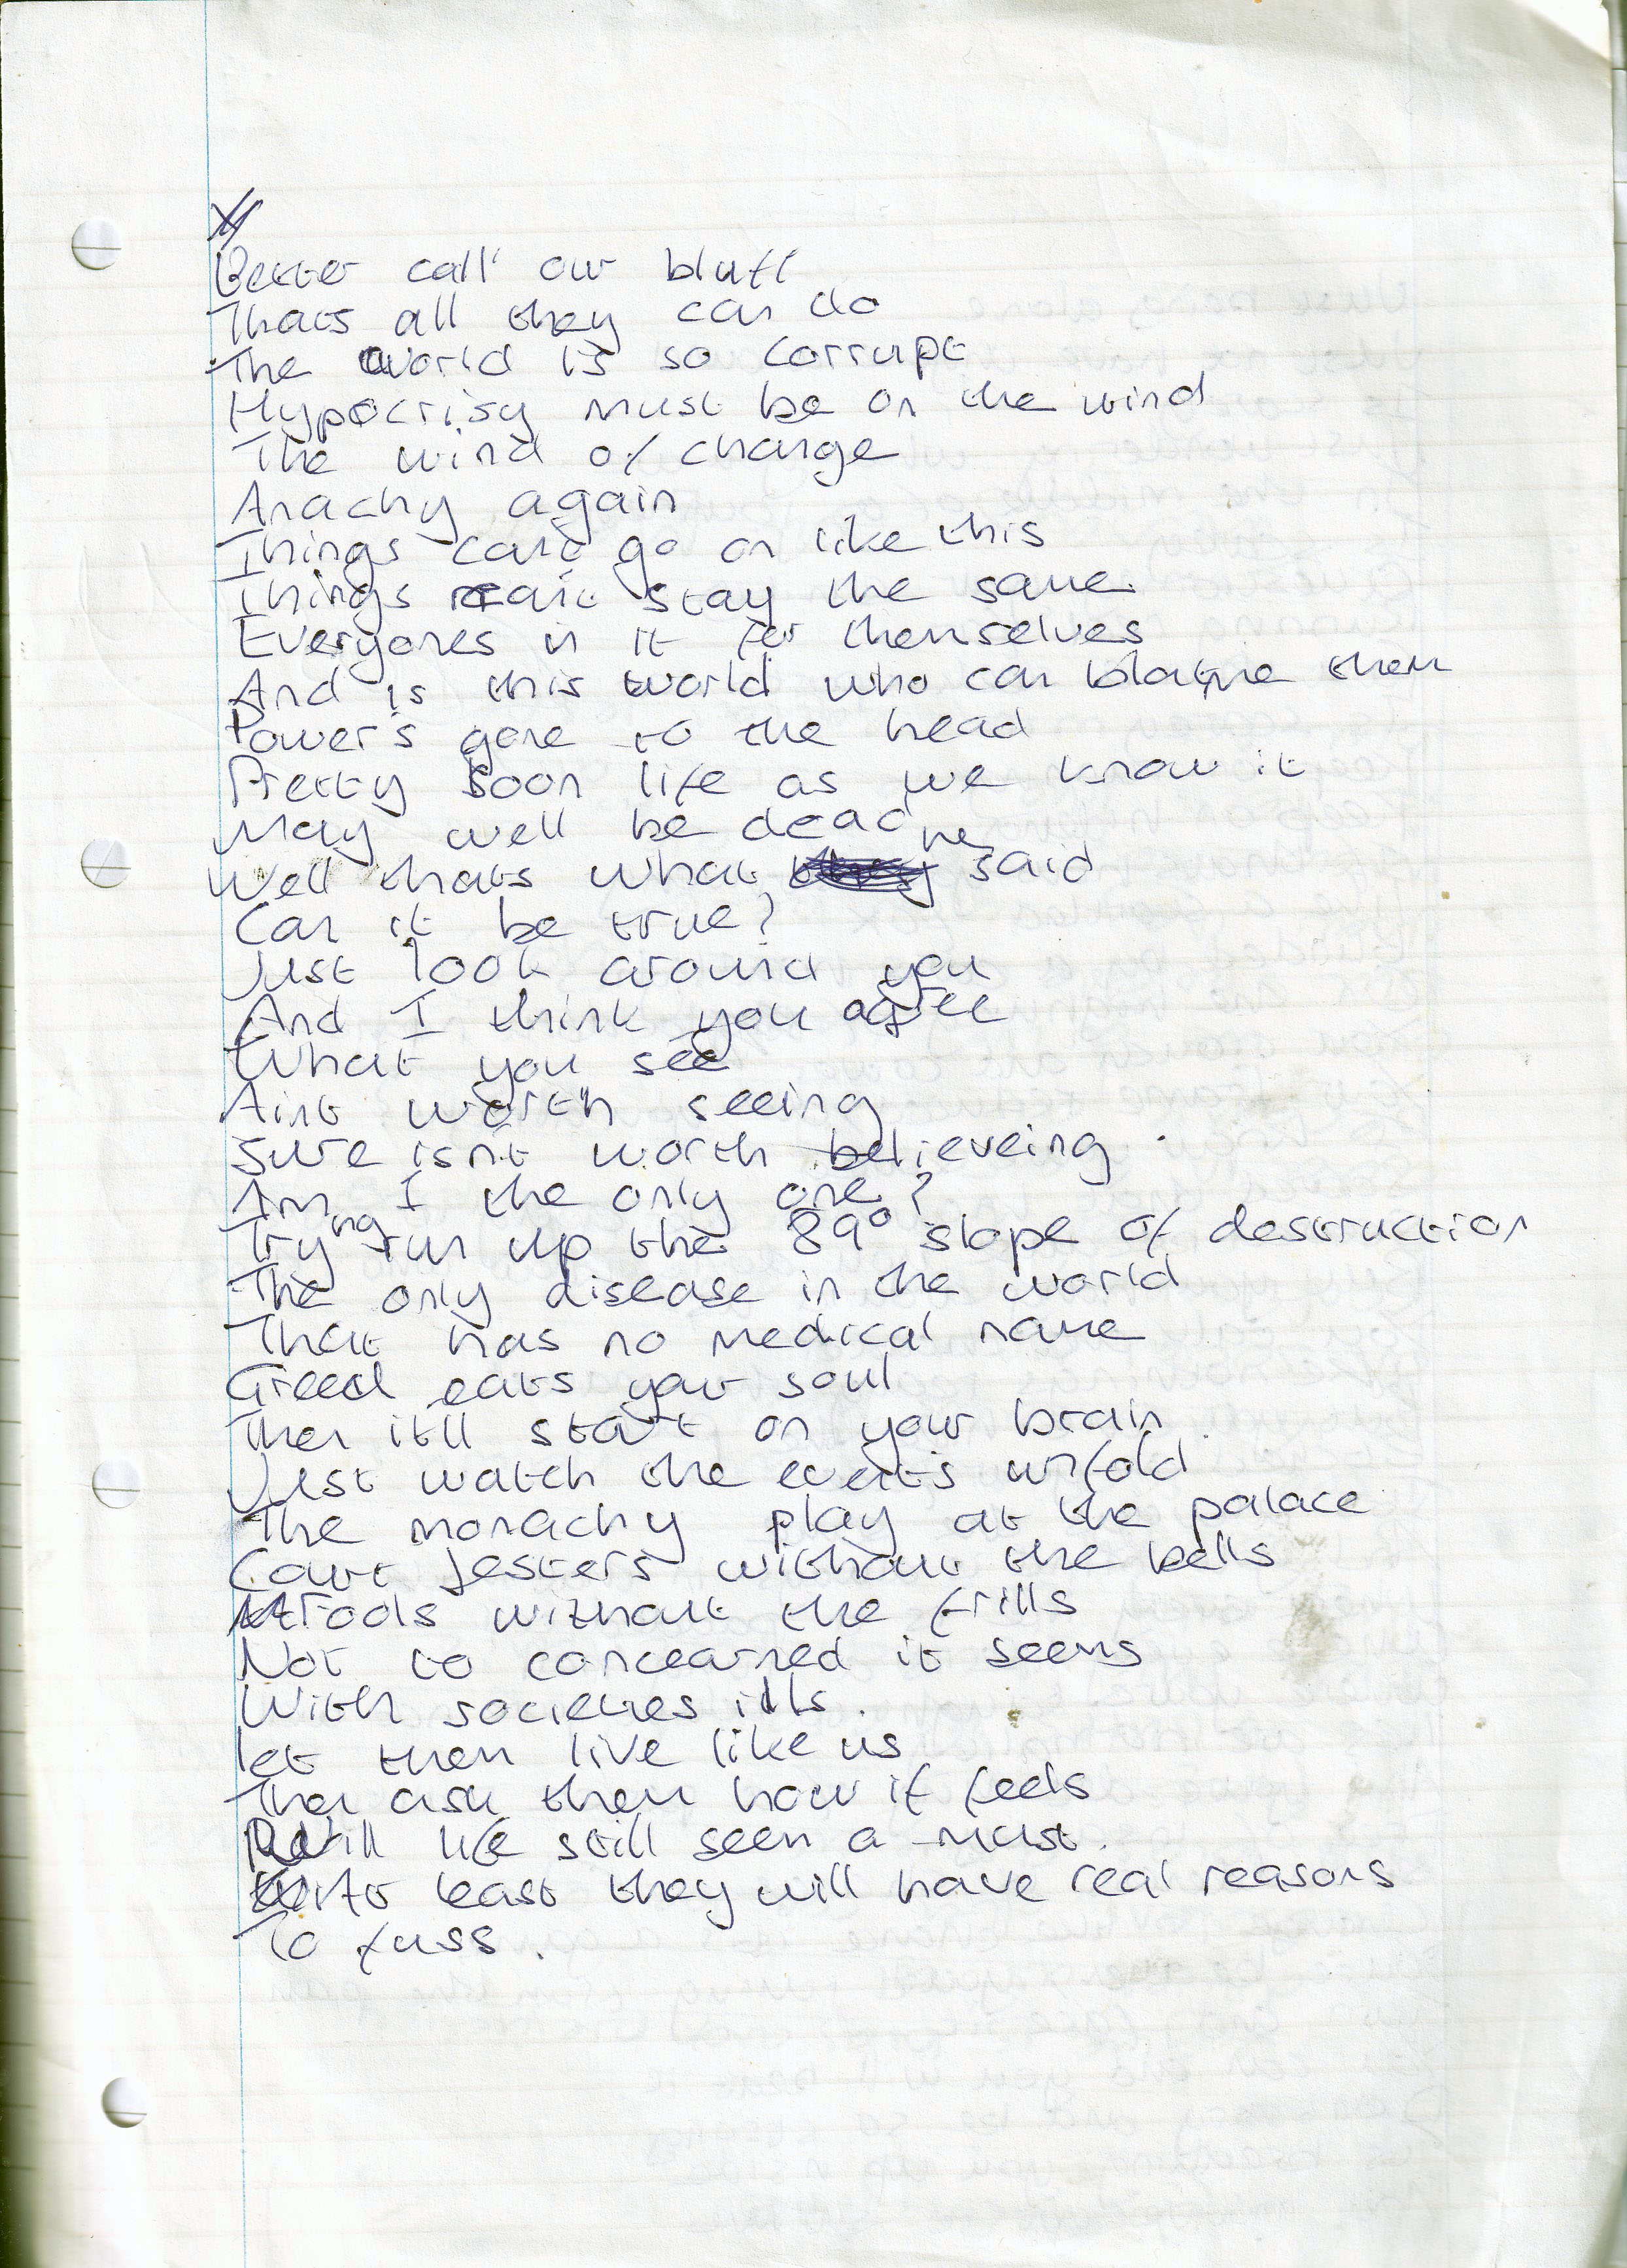 Better call our bluff
Thats all they can do
The world is so corrupt
Hypocrisy must be on the wind
The wind of change
Anachy again
Things cant go on like this
Things cant stay the same
Everyones in it for themselves
And is this world who can blame them
Power's gone to the head
Pretty soon life as we know it
May well be dead
Well thats what he said
Can it be true?
Just look around you
And I think you agree
What you see
Aint worth seeing
Sure isn't worth believeing.
Am I the only one?
Trying run up the 89° slope of destruction
The only disease in the world
That has no medical name
Greed eats your soul
Then it'll start on your brain
Just watch the events unfold
The monachy play at the palace
Court Jesters without the bells
Fools without the frills
Not to concearned it seems
With societies ills.
let them live like us
Then ask them how it feels
Will life still seem a must.
At least they will have real reasons
To fuss.